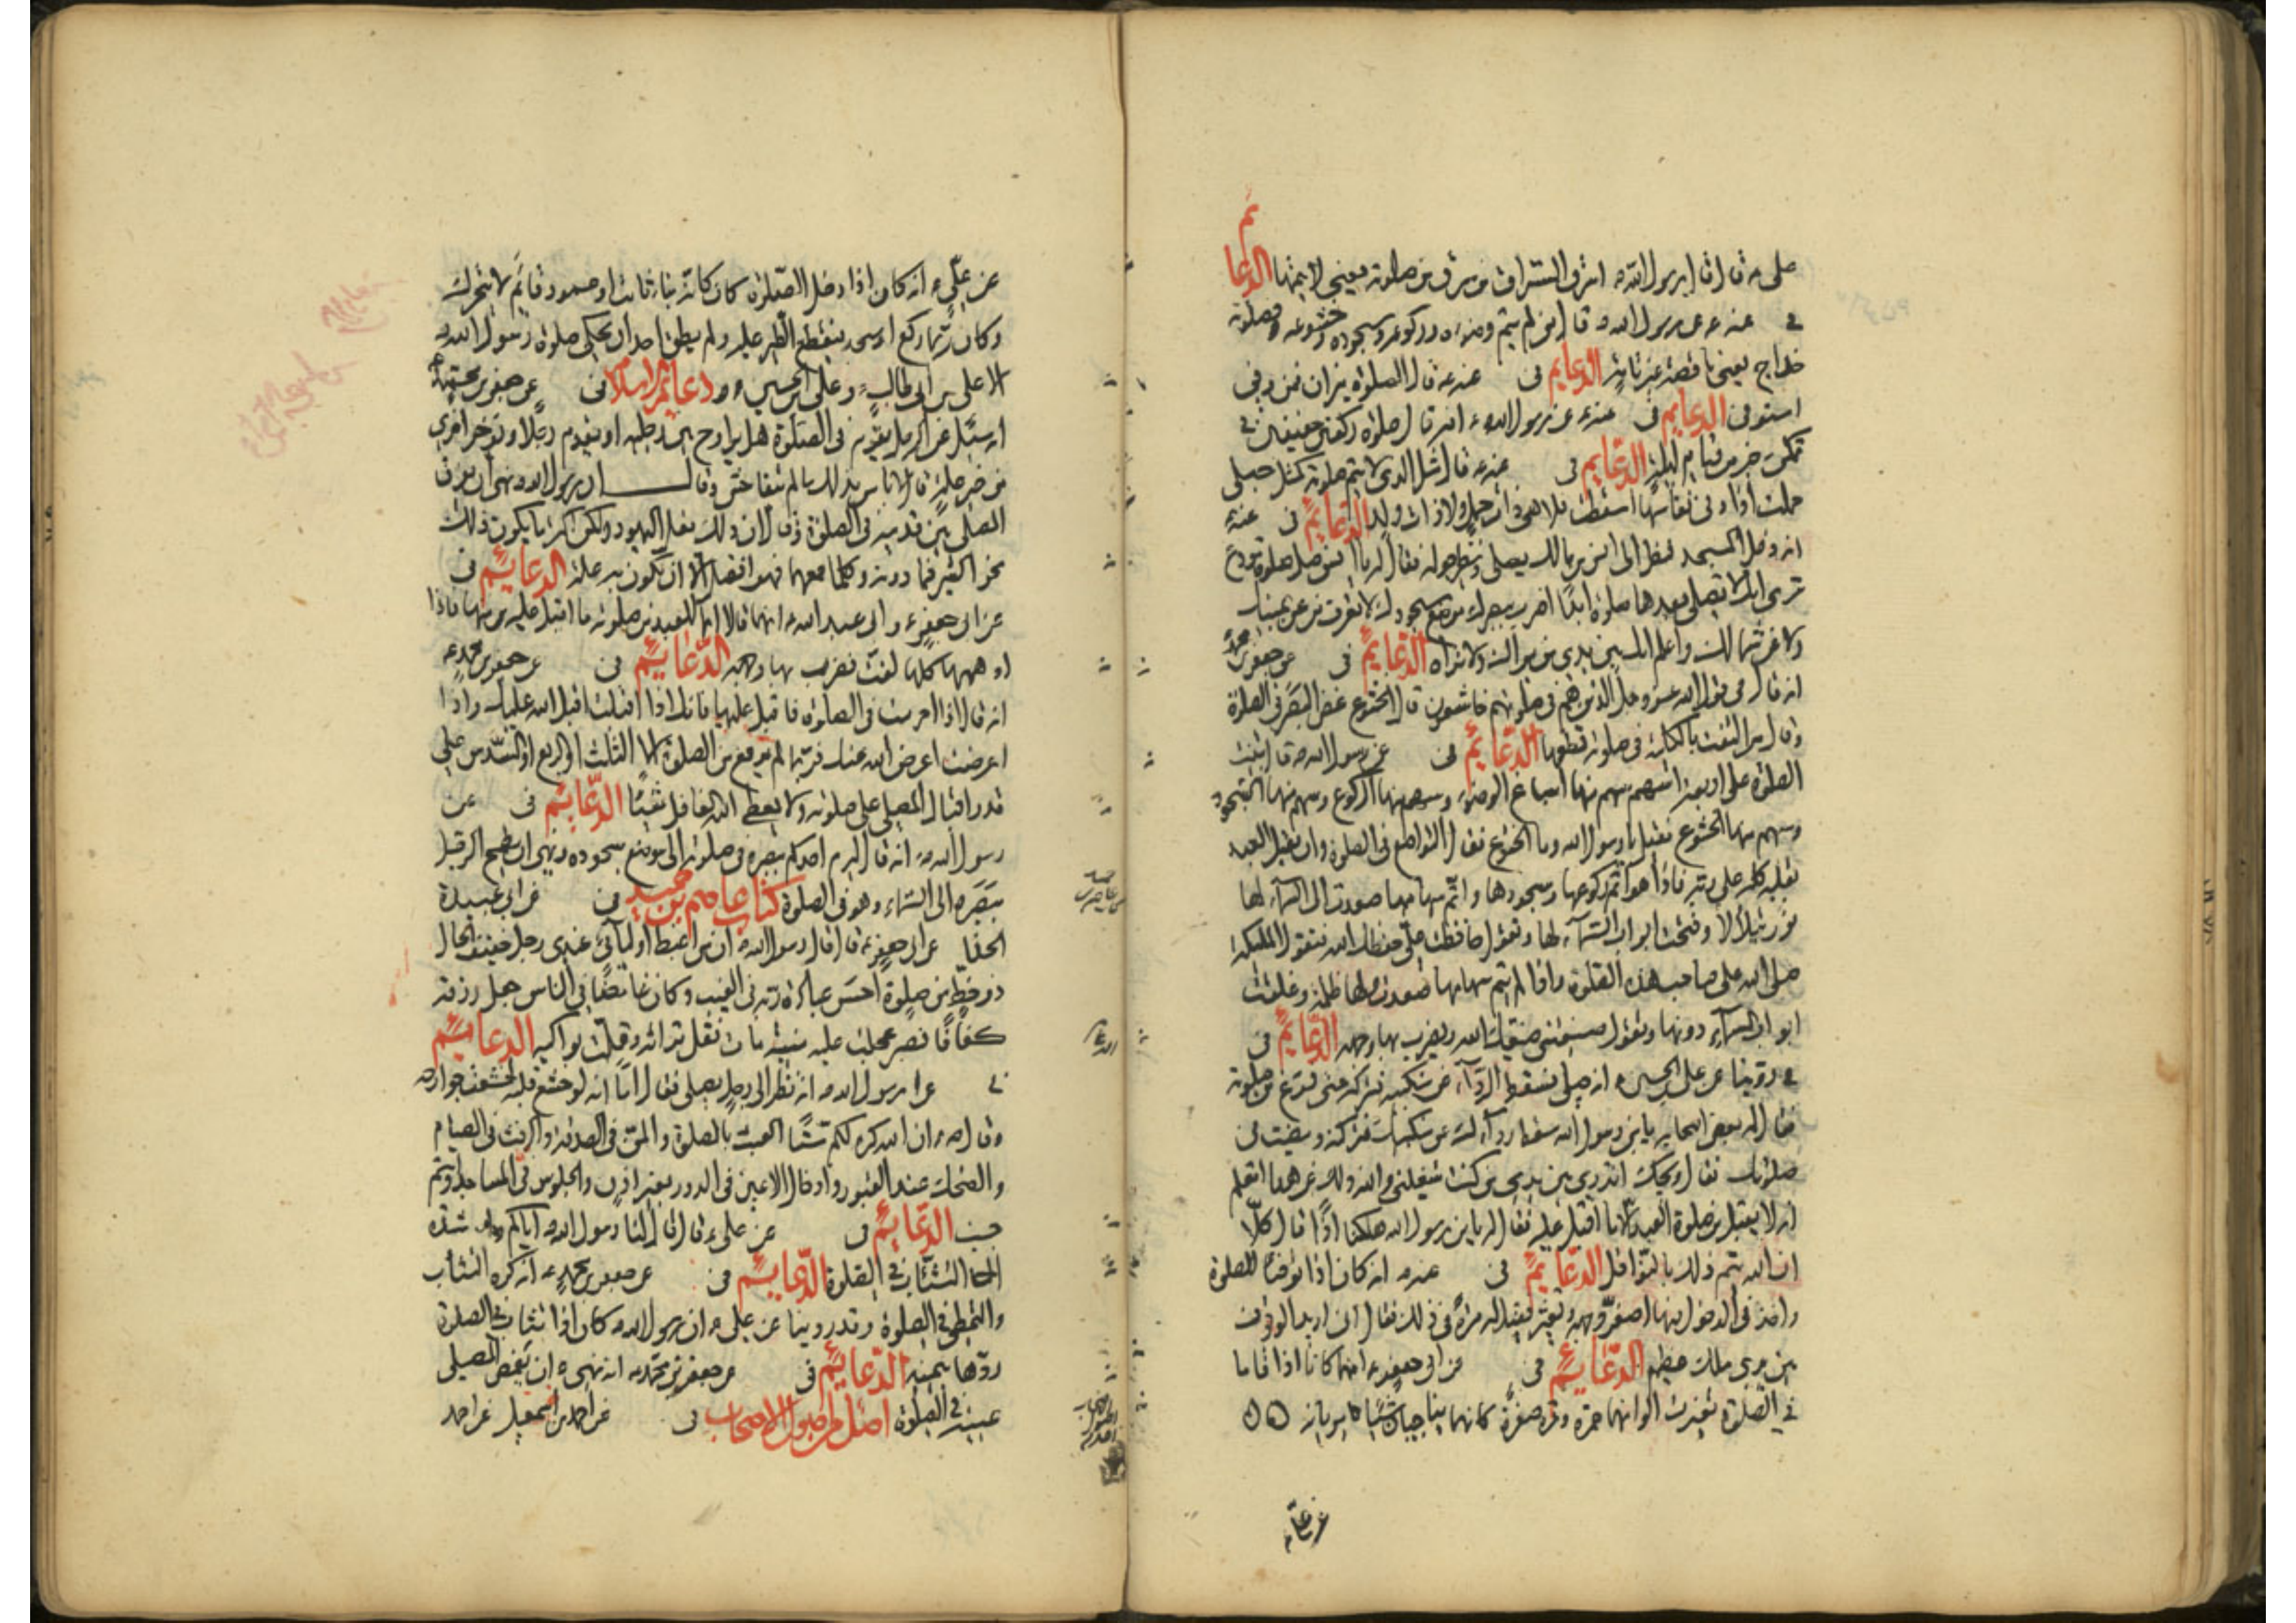 علي ع قال قال رسول الله ص اسرق السراق من سرق من صلوته يعني لا يتمها الدعائم
في عنه ع عن رسول الله ص قال من لم يتم وضوءه وركوعه وسجوده وخشوعه فصلوته
خداج يعني ناقصة غير تامة الدعائم في عنه ع قال الصلوة ميزان فمن وفى
استوفى الدعائم في عنه ع عن رسول الله ص انه قال صلوة ركعتين خفيفتين في
تمكن خير من قيام ليلة الدعائم في عنه ع قال مثل الذي لا يتم صلوته كمثل حبلى
حملت اذا دنى نفاسها اسقطت فلا هي ذات حمل ولا ذات ولد الدعائم في عنه ع
انه دخل المسجد فنظر الى انس بن مالك يصلي وينظر حوله فقال له يا انس صل صلوة مودع
ترى انك لا تصلي بعدها صلوة ابدا اضرب ببصرك موضع سجودك لا تعرف من عن يمينك
ولا عن شمالك واعلم انك بين يدي من يراك ولا تراه الدعائم في عن جعفر بن محمد
انه قال في قول الله عز وجل الذين هم في صلوتهم خاشعون قال الخشوع غض البصر في الصلوة
وقال من التفت بالكلية في صلوته قطعها الدعائم في عن رسول الله ص قال بنيت
الصلوة على اربعة اسهم سهم منها اسباغ الوضوء وسهم منها الركوع وسهم منها السجود
وسهم منها الخشوع فقيل يا رسول الله وما الخشوع فقال التواضع في الصلوة وان يقبل العبد
بقلبه كله على ربه فاذا هو اتم ركوعها وسجودها واتم سهامها صعدت الى السماء لها
نور يتلألأ وفتحت ابواب السماء لها وتقول حافظت علي حفظك الله فتقول الملئكة
صلى الله على صاحب هذه الصلوة واذا لم يتم سهامها صعدت ولها ظلمة وغلقت
ابواب السماء دونها وتقول ضيعتني ضيعك الله ويضرب بها وجهه الدعائم في
في روينا عن علي بن الحسين ع انه صلى فسقط الرداء عن منكبيه فتركه حتى فرغ من صلوته
فقال له بعض اصحابه يا بن رسول الله سقط رداءك عن منكبيك فتركته ومضيت في
صلوتك فقال ويحك اتدري بين يدي من كنت شغلني والله ذلك عن هذا اتعلم
انه لا يقبل من صلوة العبد الا ما اقبل عليه فقال له يا بن رسول الله هلكنا اذا قال كلا
ان الله يتم ذلك بالنوافل الدعائم في عنه ع انه كان اذا توضأ للصلوة
واخذ في الدخول فيها اصفر وجهه وتغير فقيل له مرة في ذلك فقال اني اريد الوقوف
بين يدي ملك عظيم الدعائم في عن ابي جعفر ع انهما كانا اذا قاما
في الصلوة تغيرت الوانهما حمرة ومرة صفرة كانما يناجيان شيئا يريانه
عن علي ع
عن علي ع انه كان اذا دخل الصلوة كان كانه بناء ثابت او عمود قائم لا يتحرك
وكان ربما ركع او سجد فيقع الطير عليه ولم يطق احد ان يحكي صلوة رسول الله ص
الا علي بن ابي طالب ع وعلي بن الحسين ع دعائم الاسلام في عن جعفر بن محمد ع
انه سئل عن الرجل يقوم في الصلوة هل يراوح بين رجليه او يقدم رجلا ويؤخر اخرى
من غير علة قال لا باس بذلك ما لم يتفاحش وقال ان رسول الله ص نهى ان يفرق
المصلي بين قدميه في الصلوة وقال ان ذلك فعل اليهود ولكن اكثر ما يكون ذلك
نحو الشبر فما دونه وكلما جمعهما فهو افضل الا ان تكون به علة الدعائم في
عن ابي جعفر ع وابي عبد الله ع انهما قالا انما للعبد من صلوته ما اقبل عليه منها فاذا
اوهمها كلها لفت فضرب بها وجهه الدعائم في عن جعفر بن محمد ع
انه قال اذا احرمت في الصلوة فاقبل عليها فانك اذا اقبلت اقبل الله عليك واذا
اعرضت اعرض الله عنك فربما لم يرفع من الصلوة الا الثلث او الربع او السدس على
قدر اقبال المصلي على صلوته ولا يعطي الله الغافل شيئا الدعائم في عن
رسول الله ص انه قال ليرم احدكم ببصره في صلوته الى موضع سجوده ونهى ان يطمح الرجل
ببصره الى السماء وهو في الصلوة كتاب عاصم بن حميد في عن ابي عبيدة
الحذا عن ابي جعفر ع قال قال رسول الله ص ان من اغبط اوليائي عندي رجل خفيف الحال
ذو حظ من صلوة احسن عبادة ربه في الغيب وكان غامضا في الناس جعل رزقه
كفافا فصبر عجلت عليه منيته مات فقل تراثه وقلت بواكيه الدعائم
في عن رسول الله ص انه نظر الى رجل يصلي فقال اما انه لو خشع قلبه لخشعت جوارحه
وقال ص ان الله كره لكم ستا العبث بالصلوة والمن في الصدقة والرفث في الصيام
والضحك عند القبور وادخال الاعين في الدور بغير اذن والجلوس في المساجد وانتم
جنب الدعائم في عن علي ع قال قال لنا رسول الله ص اياكم وشدة
التثاؤب في الصلوة الدعائم في عن جعفر بن محمد ع انه كره التثاؤب
والتمطي في الصلوة وقد روينا عن علي ع ان رسول الله ص كان اذا تثاءب في الصلوة
ردها بيمينه الدعائم في عن جعفر بن محمد ع انه نهى ان يغمض المصلي
عينيه في الصلوة اصل من اصول الاصحاب في عن احمد بن اسمعيل عن احمد